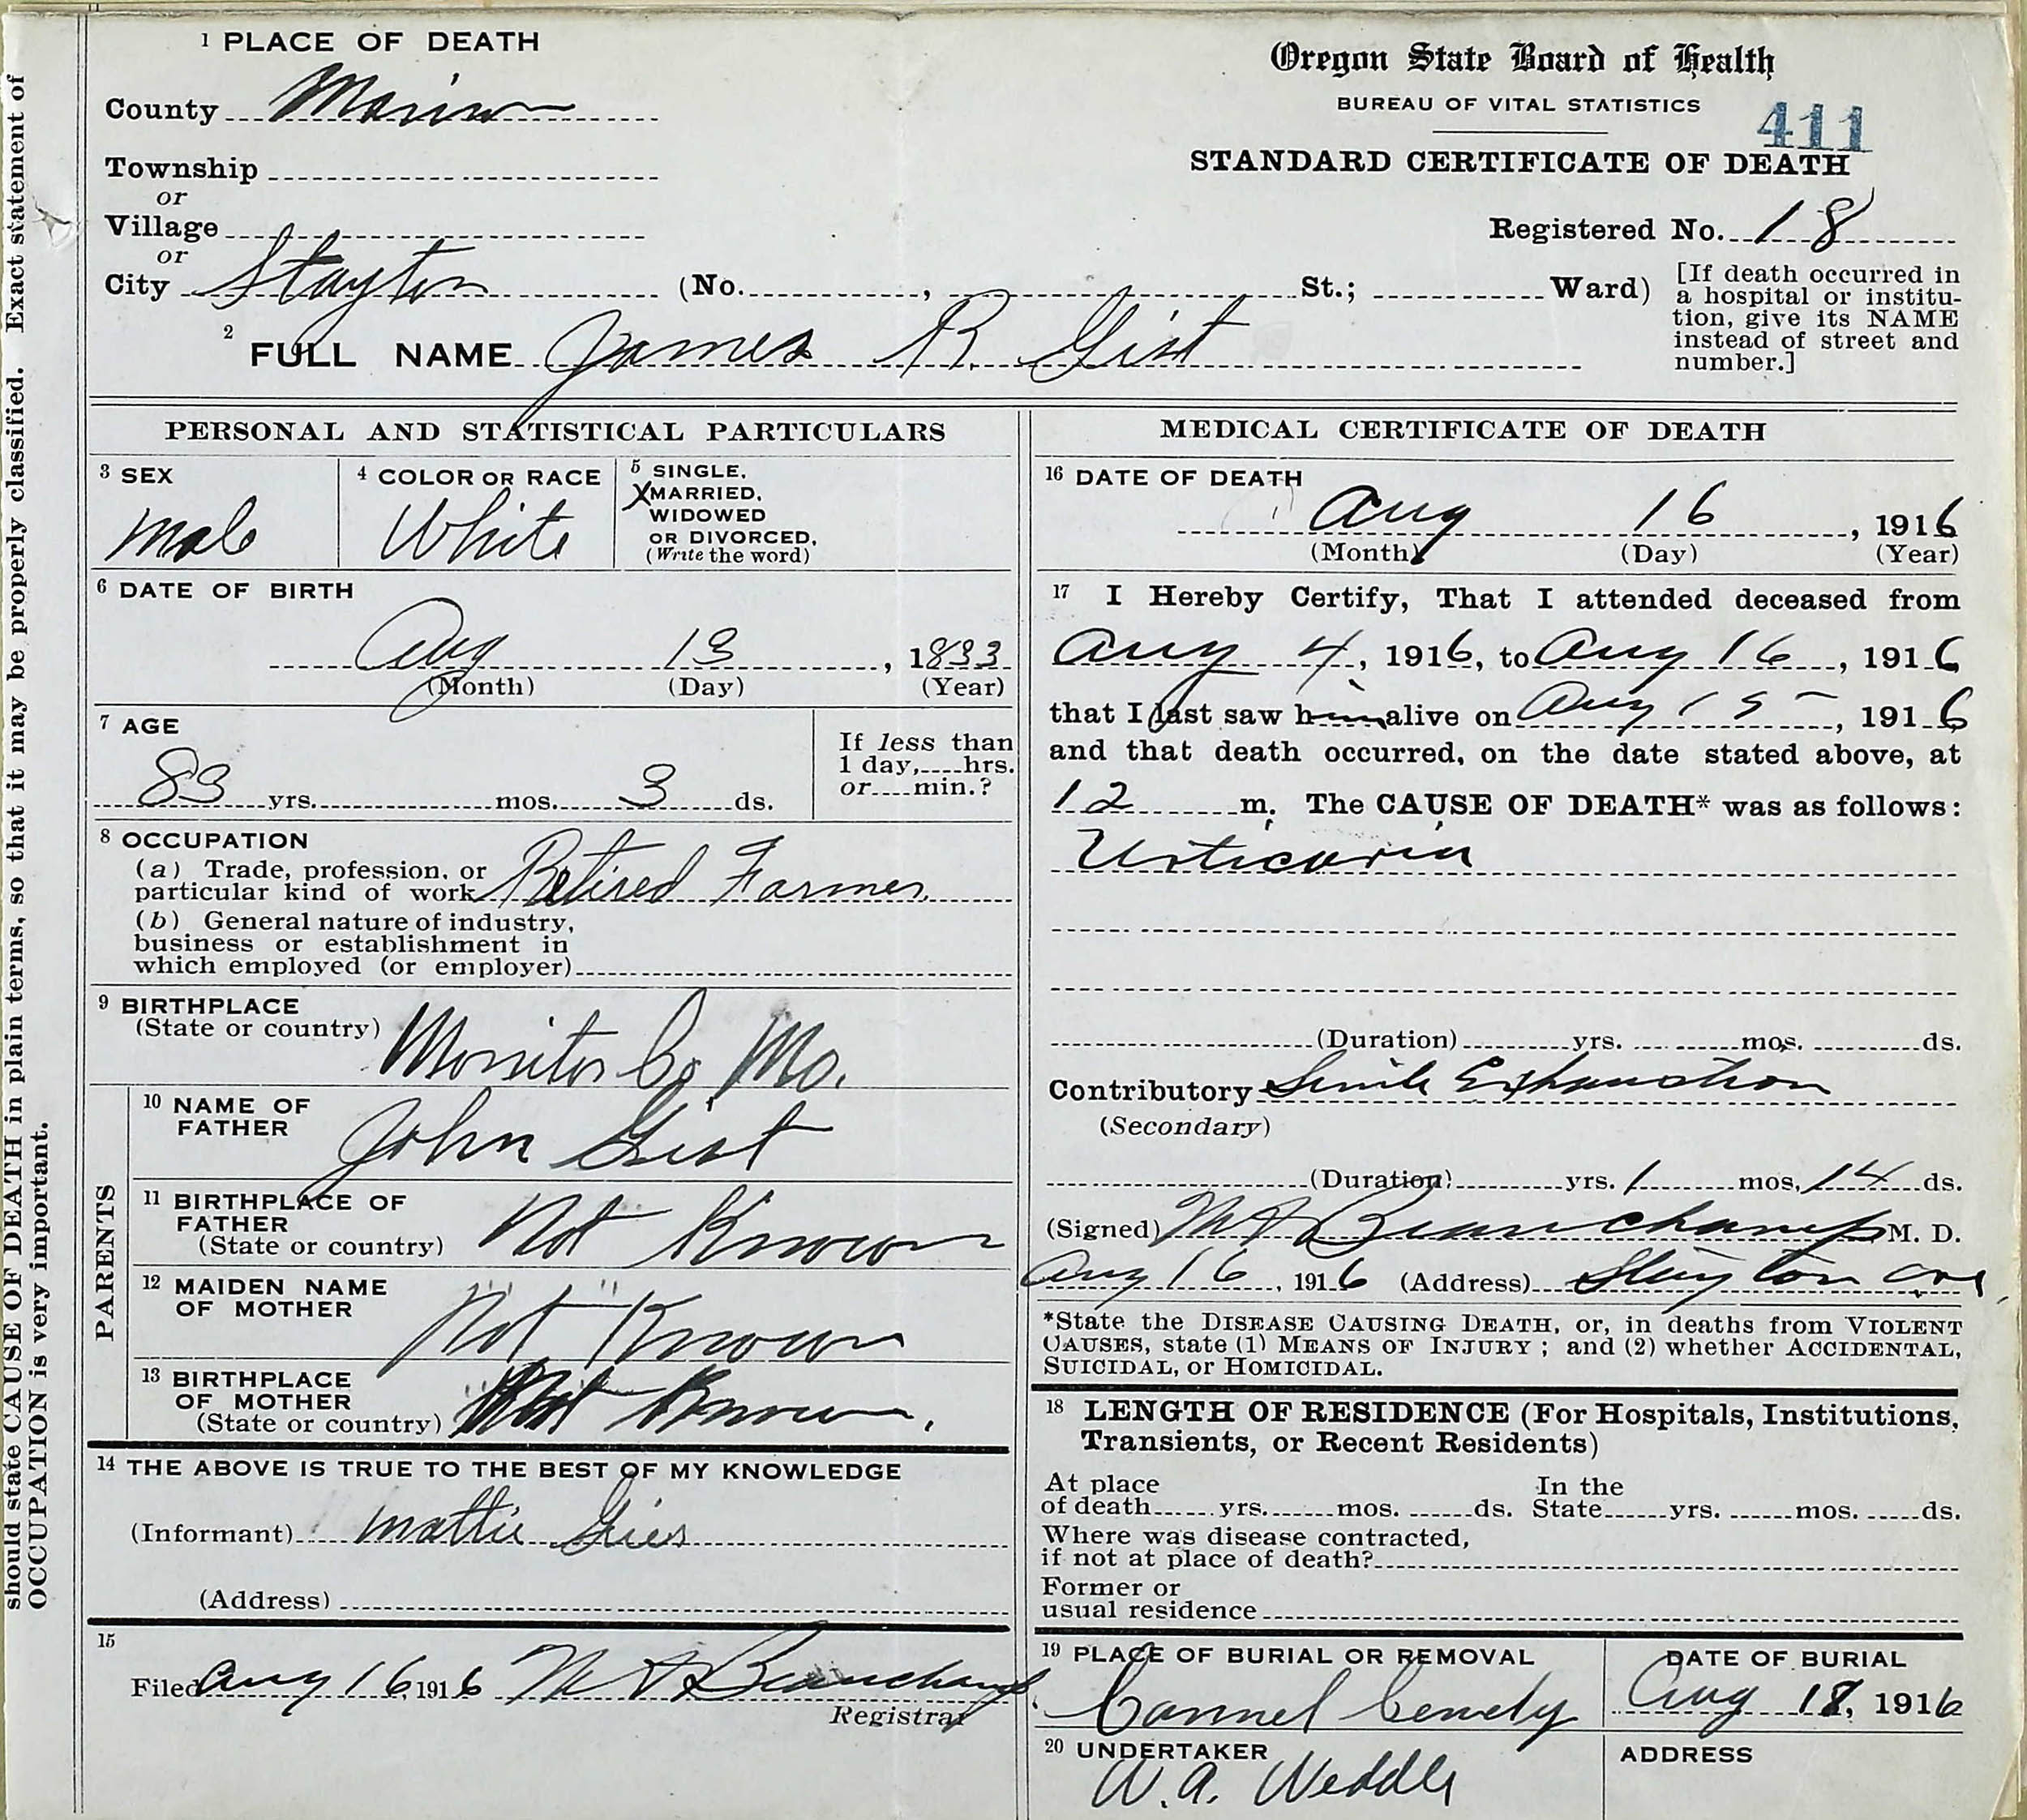 1 PLACE OF DEATH
County Marion
Township
or
Village
or
City Stayton (No. , St.; Ward)
Oregon State Board of Health
BUREAU OF VITAL STATISTICS
411
STANDARD CERTIFICATE OF DEATH
Registered No. 18
[If death occurred in
a hospital or institu-
tion, give its NAME
instead of street and
number.]
2 FULL NAME James R. Gist
PERSONAL AND STATISTICAL PARTICULARS
3 SEX
Male
4 COLOR OR RACE
White
5 SINGLE,
X MARRIED,
WIDOWED
OR DIVORCED,
(Write the word)
6 DATE OF BIRTH
Aug 13, 1833
(Month) (Day) (Year)
7 AGE
83 yrs. mos. 3 ds.
If less than
1 day, hrs.
or min.?
8 OCCUPATION
(a) Trade, profession, or
particular kind of work Retired Farmer
(b) General nature of industry,
business or establishment in
which employed (or employer)
9 BIRTHPLACE
(State or country) Moniter Co Mo.
PARENTS
10 NAME OF
FATHER John Gist
11 BIRTHPLACE OF
FATHER
(State or country) Not Known
12 MAIDEN NAME
OF MOTHER Not Known
13 BIRTHPLACE
OF MOTHER
(State or country) Not Known.
14 THE ABOVE IS TRUE TO THE BEST OF MY KNOWLEDGE
(Informant) Mattie
(Address)
15
Filed Aug 16, 1916 Beauchamp
Registrar
MEDICAL CERTIFICATE OF DEATH
16 DATE OF DEATH
Aug 16, 1916
(Month) (Day) (Year)
17 I Hereby Certify, That I attended deceased from
Aug 4, 1916, to Aug 16, 1916
that I last saw him alive on Aug 15, 1916
and that death occurred, on the date stated above, at
12 m. The CAUSE OF DEATH* was as follows:
Urticaria
(Duration) yrs. mos. ds.
Contributory Senile Exhaustion
(Secondary)
(Duration) yrs. 1 mos. 14 ds.
(Signed) Beauchamp M. D.
Aug 16, 1916 (Address) Stayton Ore
*State the DISEASE CAUSING DEATH, or, in deaths from VIOLENT
CAUSES, state (1) MEANS OF INJURY; and (2) whether ACCIDENTAL,
SUICIDAL, or HOMICIDAL.
18 LENGTH OF RESIDENCE (For Hospitals, Institutions,
Transients, or Recent Residents)
At place In the
of death yrs. mos. ds. State yrs. mos. ds.
Where was disease contracted,
if not at place of death?
Former or
usual residence
19 PLACE OF BURIAL OR REMOVAL
DATE OF BURIAL
Aug 18, 1916
20 UNDERTAKER
W. A. Weddle
ADDRESS
should state CAUSE OF DEATH in plain terms, so that it may be properly classified. Exact statement of
OCCUPATION is very important.